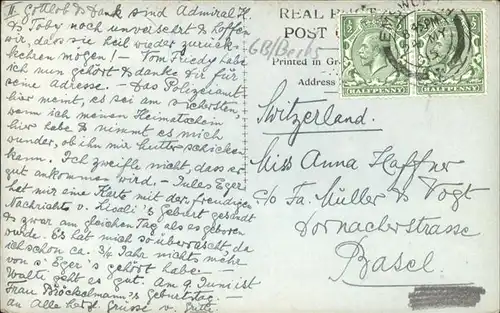 II. Gottlob & Dank sind Admiral K.
& Toby noch unversehrt & hoffen
wir, dass sie heil wieder zurück-
kehren mögen! — Tom Fuedy habe
ich nun gehört & danke Dir für
seine Adresse. — Das Polizeiamt
hier meint, es sei am sichersten,
wenn ich meinen Heimatschein
hier habe & nimmt es mich
wunder, ob ihn mir Mutter schicken
kann. Ich zweifle nicht, dass er
gut ankommen wird. — Jules Eger
hat mir eine Karte mit der freudigen
Nachricht v. Lisali's Geburt gesandt
& zwar am gleichen Tag als es geboren
wurde. Es hat mich so überrascht da
ich schon ca. 3/4 Jahr nichts mehr
von d. Eger's gehört habe. —
Walti geht es gut. Am 9. Juni ist
Frau Böckelmann's Geburtstag —
an Alle herzl. Grüsse v.
REAL
POST
GB/Berks
Printed in
Address
HALFPENNY HALFPENNY
Switzerland.
Miss Anna Haffner
c/o Fa. Müller & Vogt
Dornacherstrasse
Basel